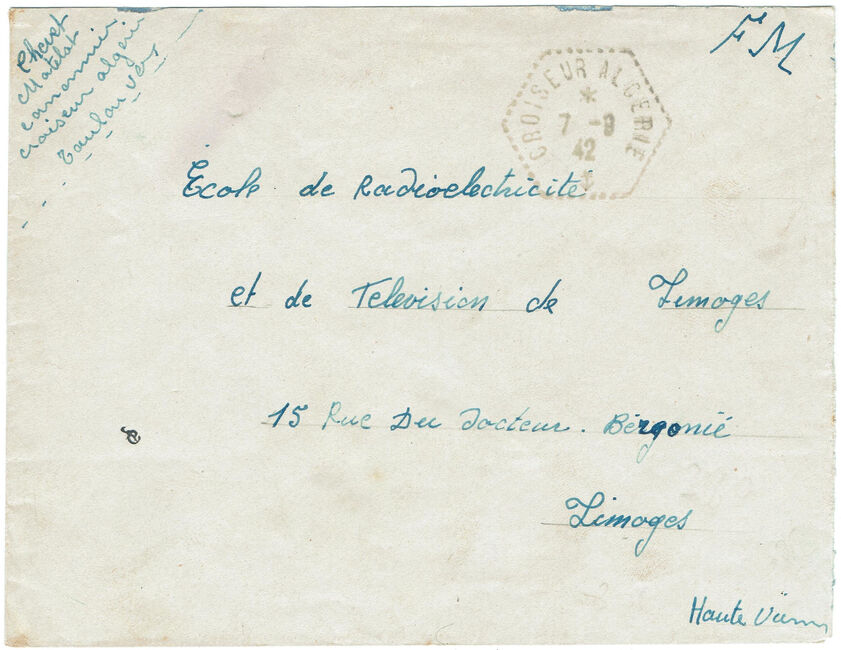 Chevet
Matelot
canonnier
croiseur algerie
Toulon Var
FM
CROISEUR ALGERIE
*
7 -9
42
École de Radioelectricité
et de Television de Limoges
15 Rue Du Docteur. Bergonié
Limoges
Haute Vienne